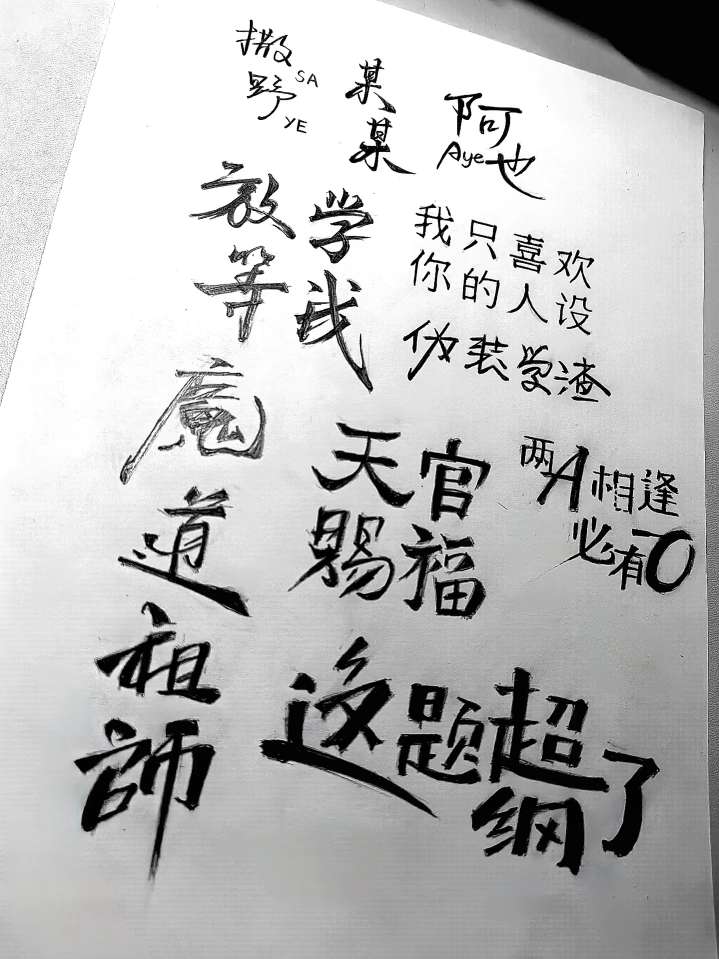 撒野
SA
YE
某某
阿也
Aye
放学
等我
我只喜欢
你的人设
伪装学渣
魔道祖師
天官
赐福
两A相逢
必有一O
这题超纲了